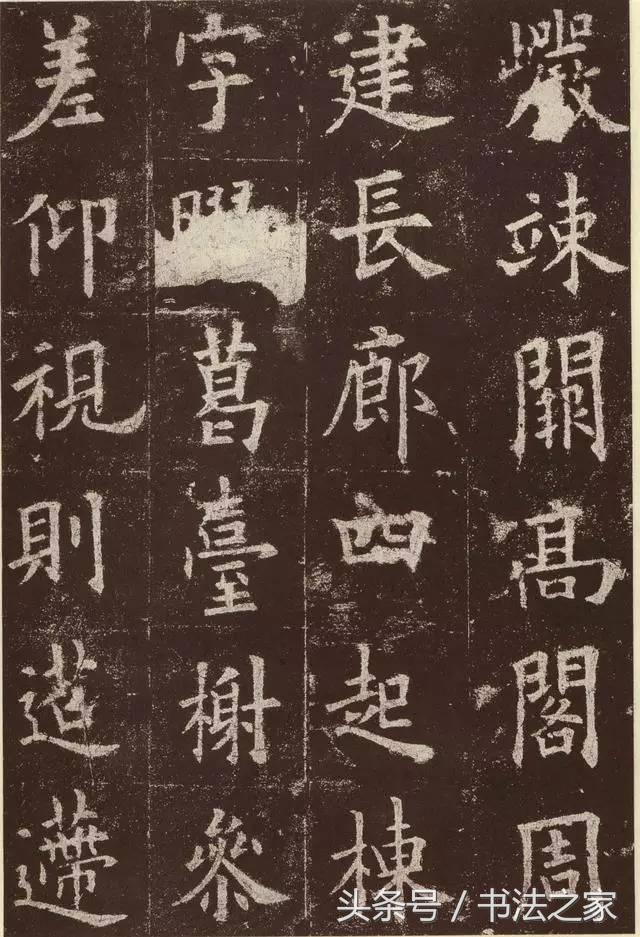 巖竦闕高閣周
建長廊四起棟
宇葛臺榭參
差仰視則迢遰
头条号 / 书法之家